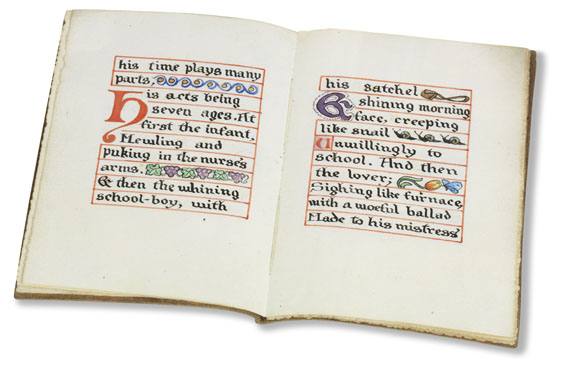 his time plays many
parts.
His acts being
seven ages. At
first the infant,
Mewling and
puking in the nurse's
arms.
& then the whining
school-boy, with
his satchel
& shining morning
face, creeping
like snail
Unwillingly to
school. And then
the lover;
Sighing like furnace,
with a woeful ballad
Made to his mistress'